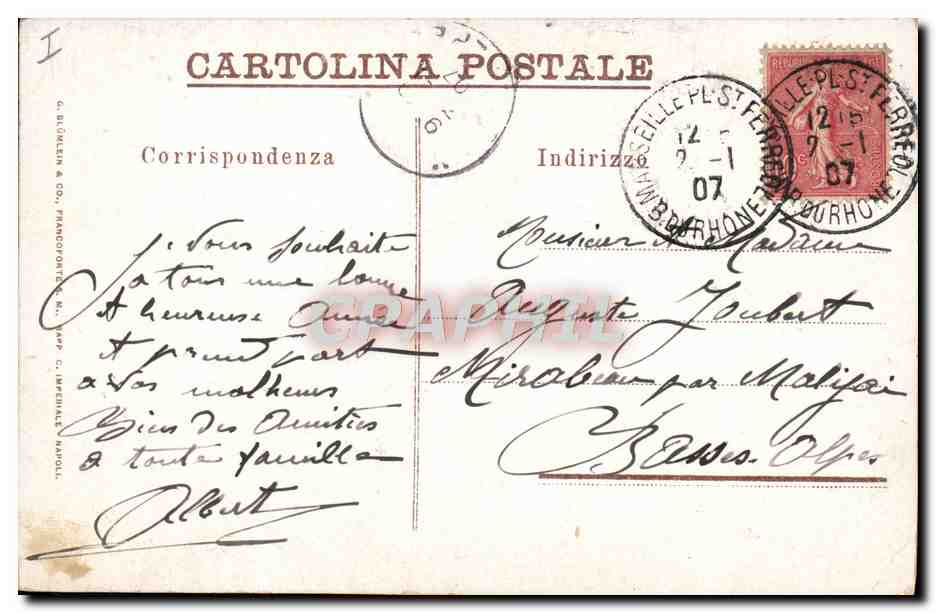 I
CARTOLINA POSTALE
Corrispondenza
Indirizzo
MARSEILLE-PL. ST FERREOL
12
2 -1
07
B. DU RHÔNE
ILLE-PL. ST FERREOL
12 15
2 -1
07
B. DU RHÔNE
Je vous souhaite
à tous une bonne
& heureuse année
& prend part
à vos malheurs
Bien des Amitiés
à toute famille
Albert
Monsieur & Madame
Auguste Joubert
Mirabeau par Malijai
Basses-Alpes
G. BLÜMLEIN & CO., FRANCOFORTE S. M., RAPP. C. IMPERIALE - NAPOLI.
CRAPHIL